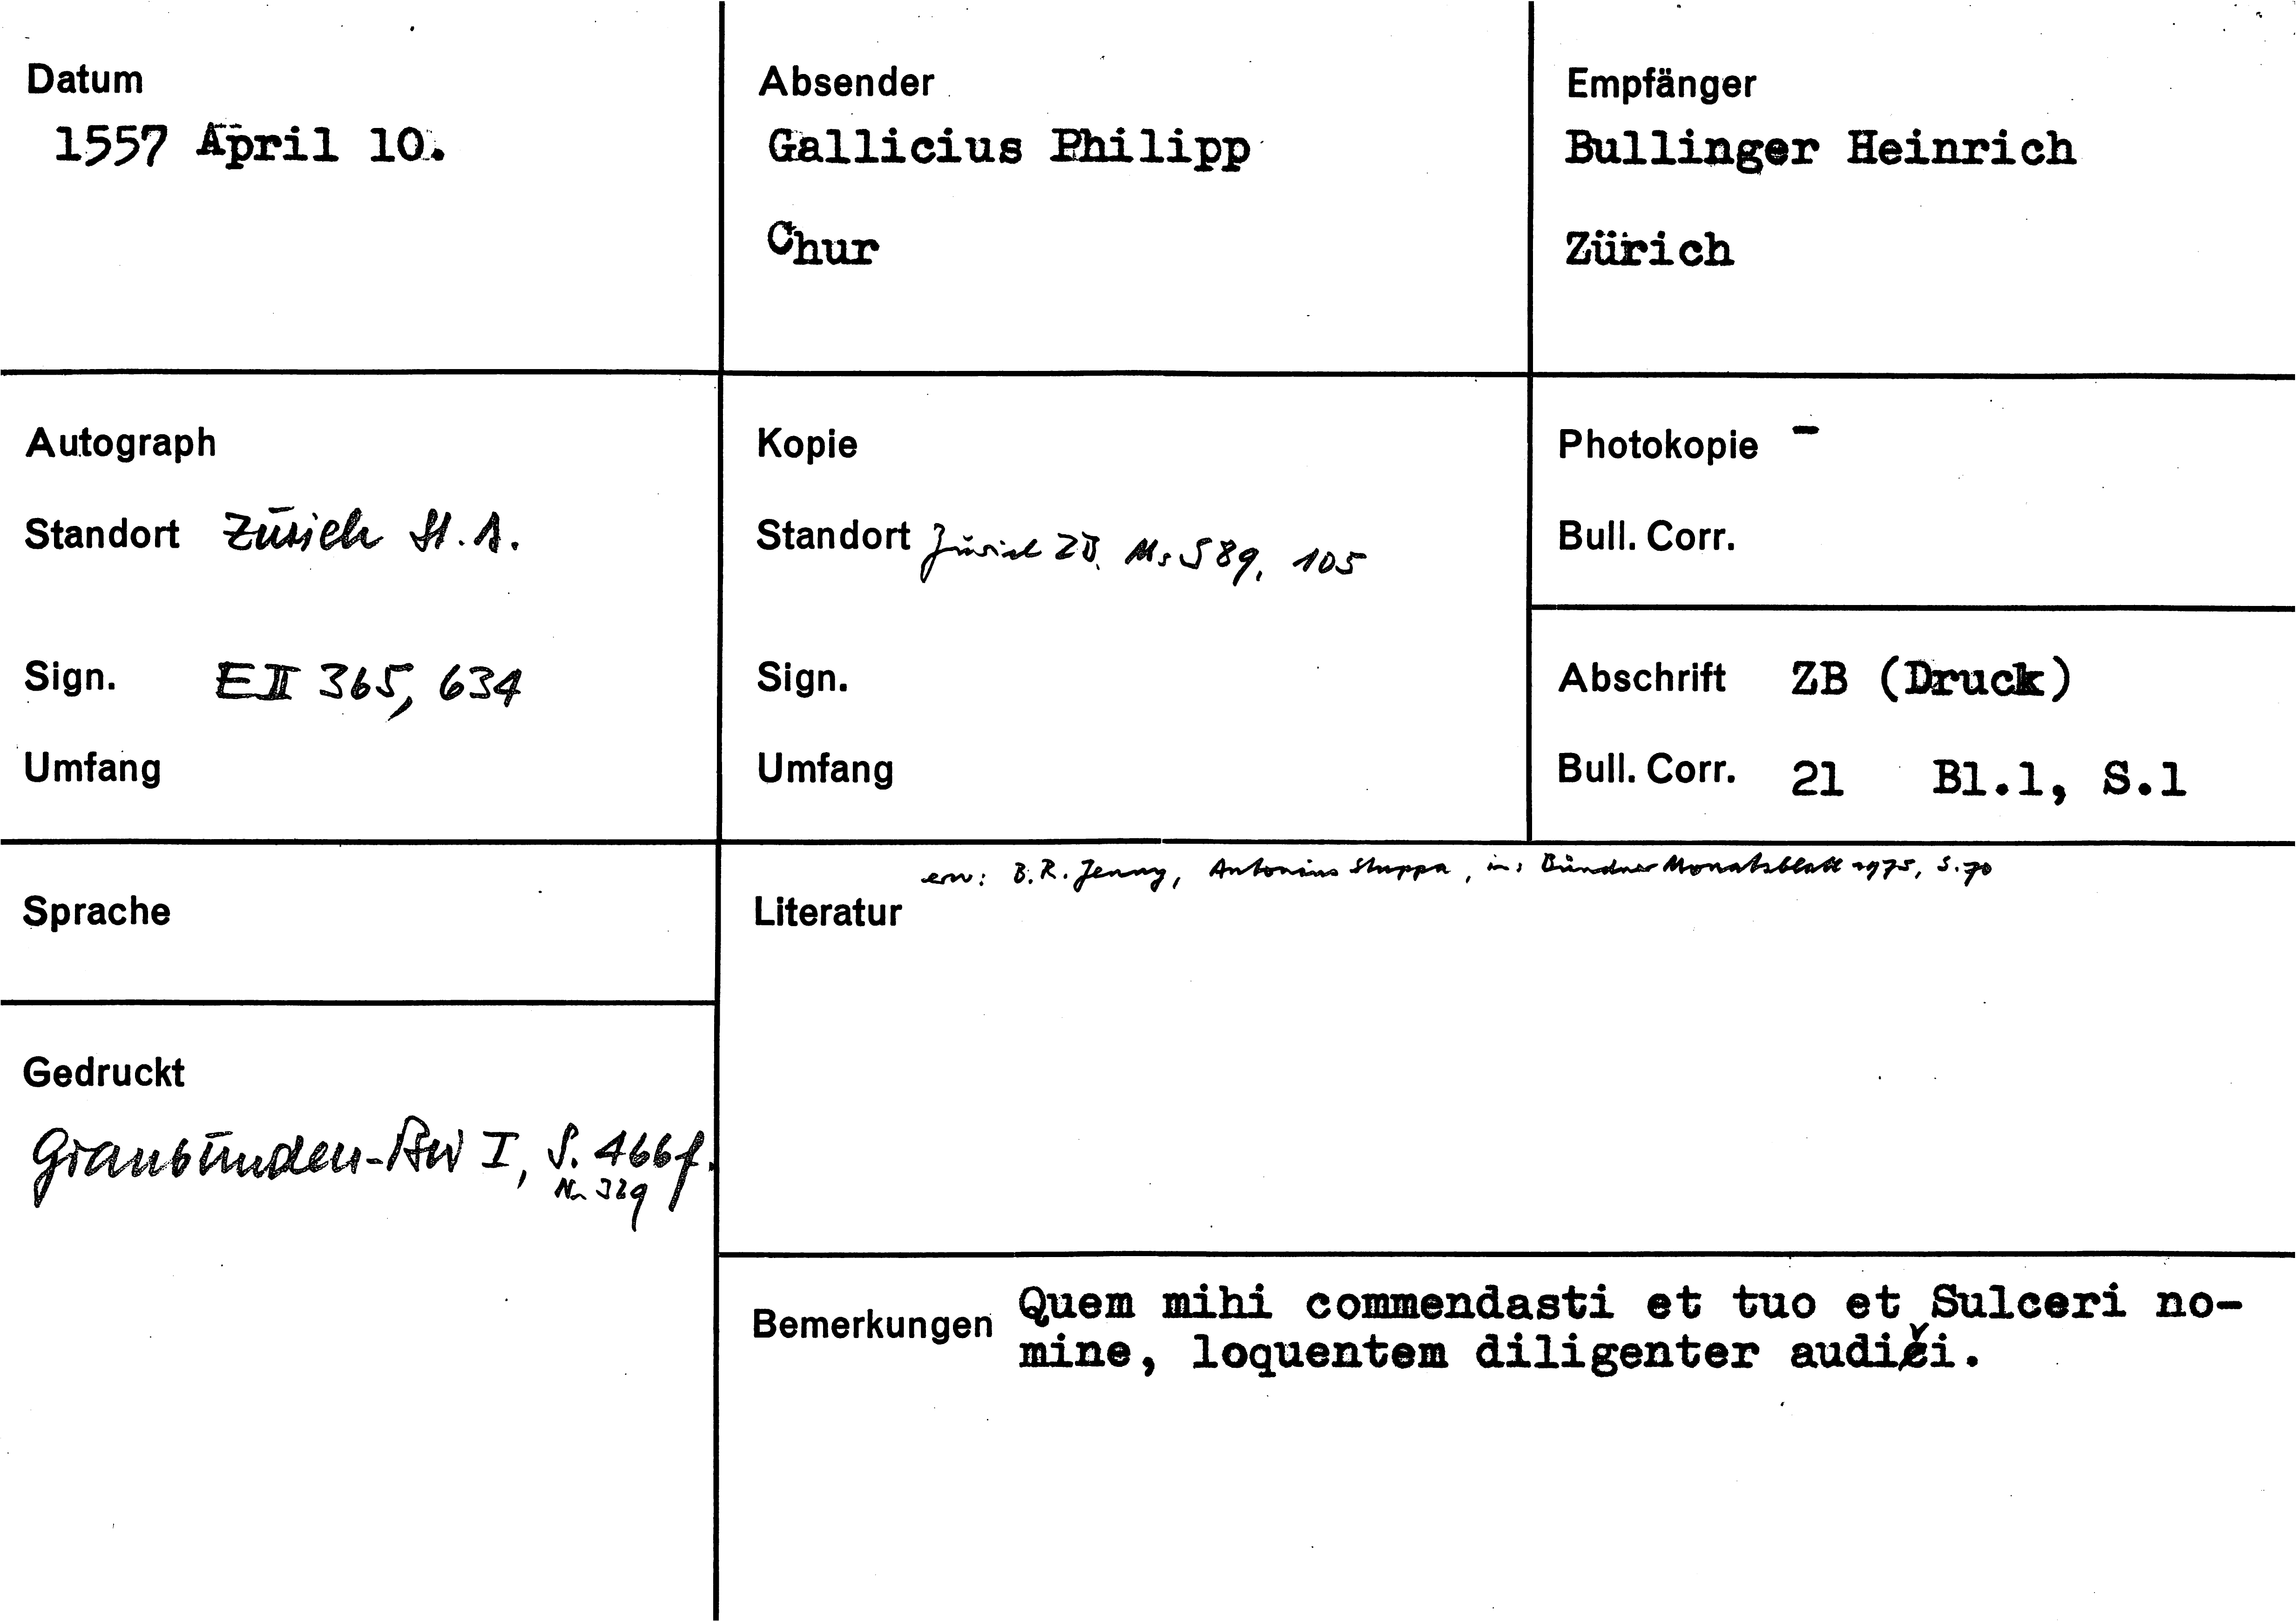 Datum
1557 April 10.
Absender
Gallicius Philipp
Chur
Empfänger
Bullinger Heinrich
Zürich
Autograph
Standort Zürich St. A.
Sign. E II 365, 634
Umfang
Kopie
Standort Zürich ZB. Ms S 89, 105
Sign.
Umfang
Photokopie -
Bull. Corr.
Abschrift ZB (Druck)
Bull. Corr. 21 Bl.1, S.1
Sprache
Gedruckt
Graubünden-Bw I, S. 466f.
Nr 329
erw: B. R. Jenny, Antonius Stuppa, in: Bündner Monatsblatt 1975, S. 70
Literatur
Bemerkungen Quem mihi commendasti et tuo et Sulceri no-
mine, loquentem diligenter audivi.